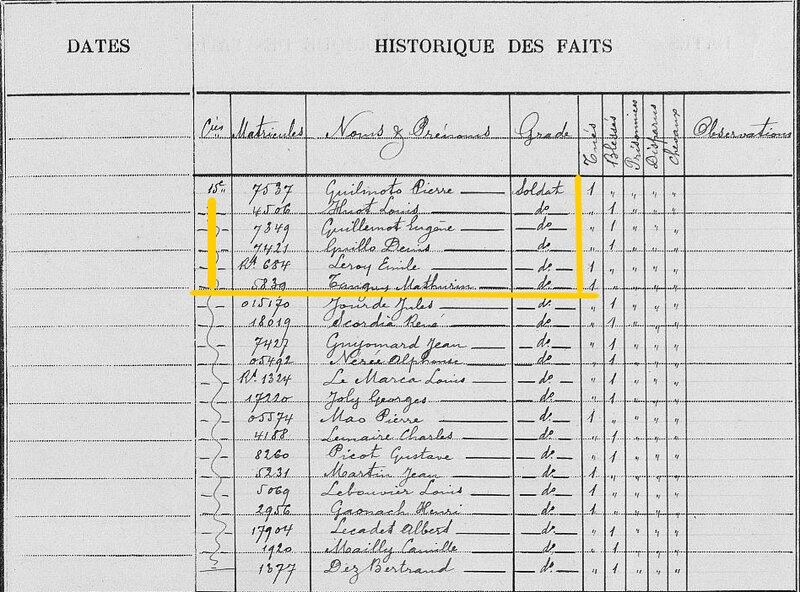 DATES HISTORIQUE DES FAITS
Cies Matricules Noms & Prénoms Grade Tués Blessés Prisonniers Disparus Chevaux Observations
15e 7537 Guilmoto Pierre — Soldat 1 " " " "
— 4506 Huot Louis — do — " 1 " " "
— 7349 Guillemot Eugène — do — " 1 " " "
— 7421 Guillo Denis — do — " 1 " " "
— Rt 684 Leroy Emile — do — 1 " " " "
— 5839 Tanguy Mathurin — do — 1 " " " "
— 015170 Jourde Jules — do — " 1 " " "
— 18019 Scordia René — do — " 1 " " "
— 7427 Guyomard Jean — do — " 1 " " "
— 05492 Nerée Alphonse — do — " 1 " " "
— Rt 1324 Le Marca Louis — do — " 1 " " "
— 17220 Joly Georges — do — " 1 " " "
— 05574 Mao Pierre — do — 1 " " " "
— 4188 Lemaire Charles — do — " 1 " " "
— 8260 Picot Gustave — do — " 1 " " "
— 5231 Martin Jean — do — 1 " " " "
— 5069 Lebouvier Louis — do — 1 " " " "
— 2956 Gaonach Henri — do — 1 " " " "
— 17904 Lecadet Albert — do — " 1 " " "
— 1920 Mailly Camille — do — " 1 " " "
— 1377 Dez Bertrand — do — " 1 " " "